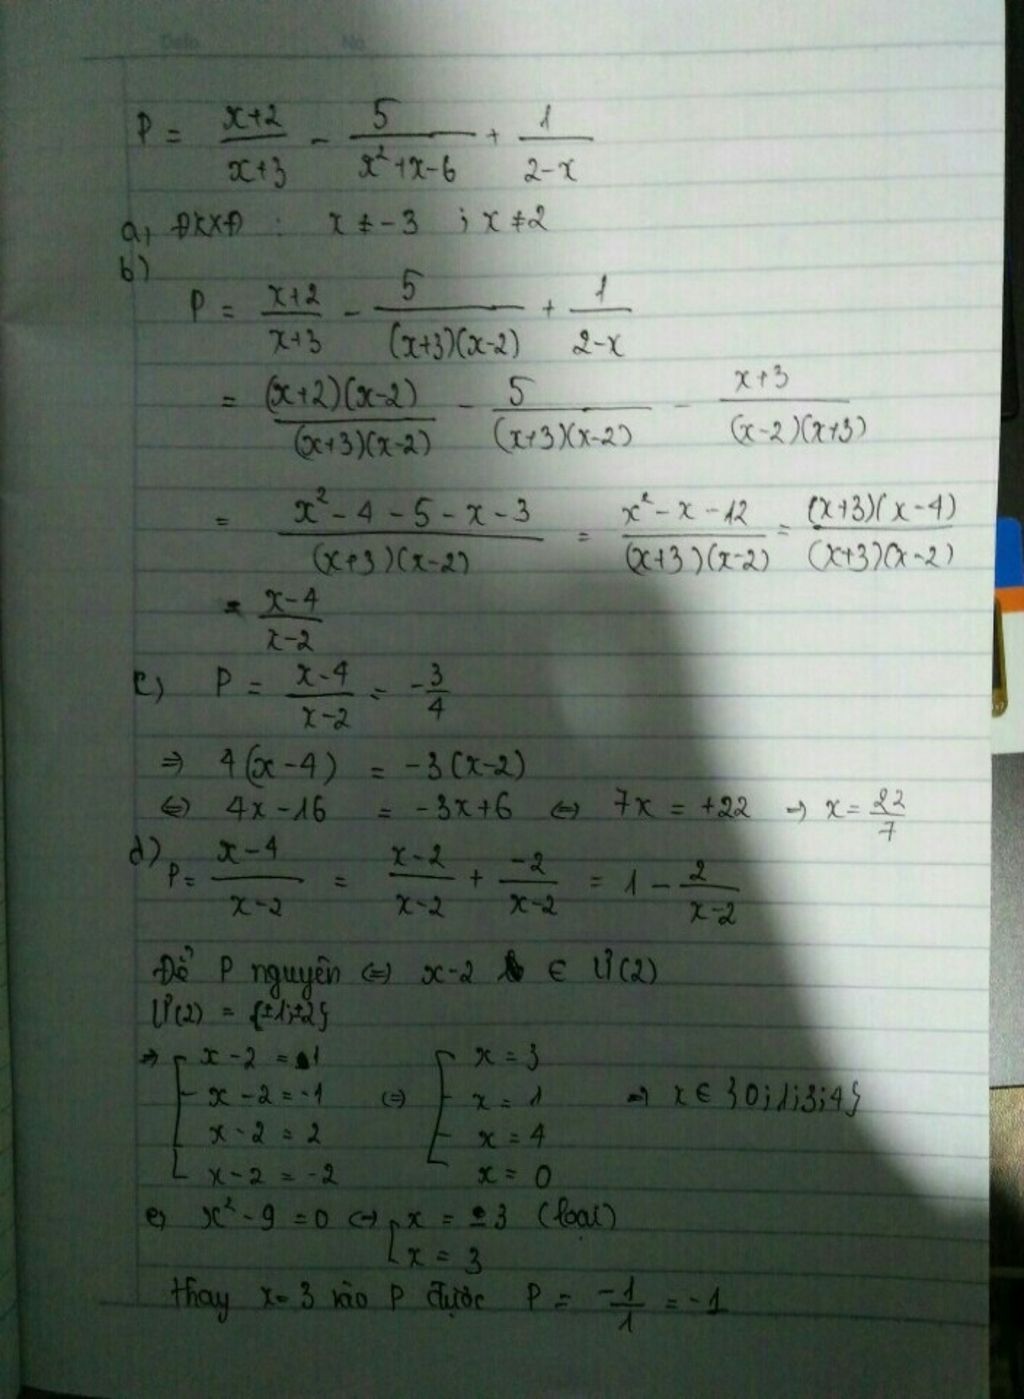 P = \frac{x+2}{x+3} - \frac{5}{x^2+x-6} + \frac{1}{2-x}
a, ĐKXĐ : x ≠ -3 ; x ≠ 2
b)
P = \frac{x+2}{x+3} - \frac{5}{(x+3)(x-2)} + \frac{1}{2-x}
= \frac{(x+2)(x-2)}{(x+3)(x-2)} - \frac{5}{(x+3)(x-2)} - \frac{x+3}{(x-2)(x+3)}
= \frac{x^2-4-5-x-3}{(x+3)(x-2)} = \frac{x^2-x-12}{(x+3)(x-2)} = \frac{(x+3)(x-4)}{(x+3)(x-2)}
= \frac{x-4}{x-2}
c) P = \frac{x-4}{x-2} = -\frac{3}{4}
⇒ 4(x-4) = -3(x-2)
⇔ 4x-16 = -3x+6 ⇔ 7x = +22 → x = \frac{22}{7}
d) P = \frac{x-4}{x-2} = \frac{x-2}{x-2} + \frac{-2}{x-2} = 1 - \frac{2}{x-2}
Để P nguyên ⇔ x-2 ∈ Ư(2)
Ư(2) = {±1;±2}
⇒ x-2 = 1 x = 3
x-2 = -1 ⇔ x = 1 ⇒ x ∈ {0;1;3;4}
x-2 = 2 x = 4
x-2 = -2 x = 0
e, x^2-9 = 0 ⇔ x = -3 (loại)
x = 3
thay x = 3 vào P được P = \frac{-1}{1} = -1